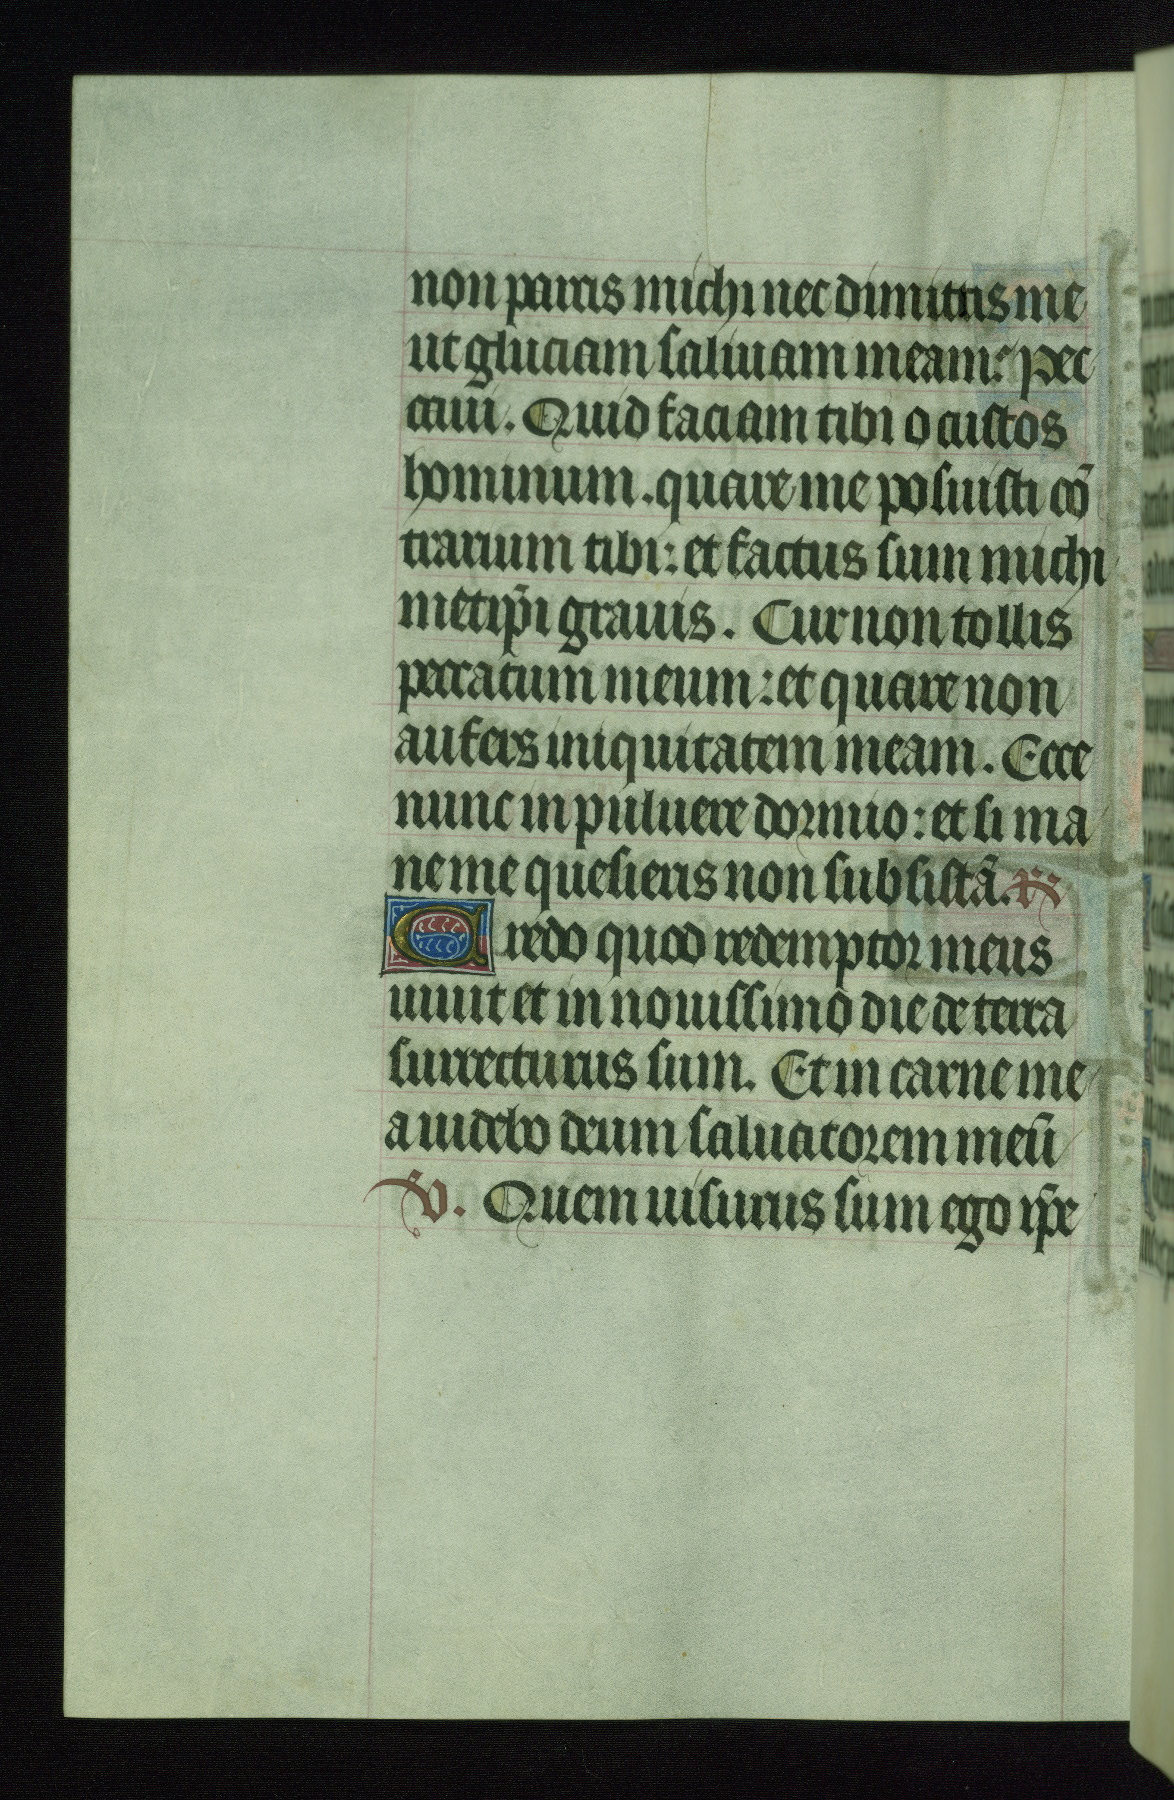 non parcis michi nec dimittis me
ut gluciam saliuam meam: Pec
caui. Quid faciam tibi o custos
hominum. quare me posuisti cõ
trarium tibi: et factus sum michi
metip̃i grauis. Cur non tollis
peccatum meum: et quare non
aufers iniquitatem meam. Ecce
nunc in puluere dormio: et si ma
ne me quesieris non subsistã. R
Credo quod redemptor meus
uiuit et in nouissimo die de terra
surrecturus sum. Et in carne me
a uidebo deum saluatorem meũ
V. Quem uisurus sum ego ip̃e